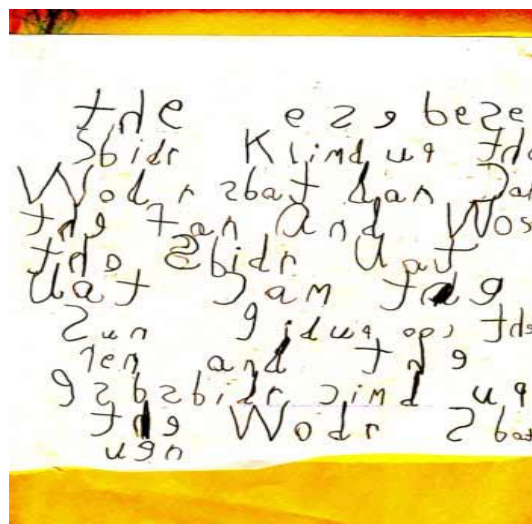 tde ese beze
Sbidr Klimd up tde
Wodr sbat dan
tde ran and Wos
tde Sbidr Uat
Uat Cam tde
Sun tde
ren and tde
sbidr cimd up
tde Wodr Sbat
uen